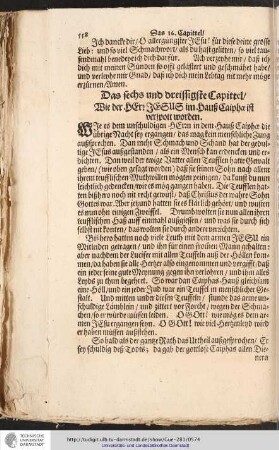 158 Das 36. Capittel/
Ich dancke dir/ O allergütigster JEsu/ für diese deine grosse
Lieb: und so viel Schmachwort/ als du hast gelitten/ so viel tau-
sendmahl benedeye ich dich darfür. Ach verzeyhe mir/ daß ich
dich mit meinen Sünden so offt gelästert und geschmähet habe/
und verleyhe mir Gnad/ daß ich dich mein Lebtag mit mehr möge
erzürnen/ Amen.
Das sechs und dreissigste Capittel/
Wie der HErr JESUS im Hauß Caiphæ ist
verspott worden.
WIe es dem unschuldigen HErrn in dem Hauß Caiphæ die
übrige Nacht sey ergangen/ das mag kein menschliche Zung
außsprechen. Dan mehr Schmach und Schand hat der gedul-
dige JEsus außgestanden/ als ein Mensch kan erdencken und er-
dichten. Dan weil der ewige Vatter allen Teufflen hatte Gewalt
geben/ (wie oben gesagt worden) daß sie seinen Sohn nach allem
ihrem teufflischen Muthwillen mögten peinigen/ da kanst du nun
leichtlich gedencken/ wie es mög gangen haben. Die Teufflen hat-
ten bißhero noch nit recht gewust/ daß Christus der wahre Sohn
Gottes war. Aber jetzund hatten sies Caiphas gehöret/ und hatten
nun mehr ohn einigen Zweiffel. Drumb wolten sie nun allen ihren
teufflischen Haß auff einmahl außgiessen/ und was sie durch sich
selbst nit konten/ das wolten sie durch andere verrichten.
Bishero hatten noch viele Leuth mit dem armen JESU ein
Mitleiden getragen/ und ihn für einen frommen Mann gehalten:
aber nachdem der Lucifer mit allen Teufflen auß der Höllen kom-
men/ da haben sie alle Hertzen also eingenommen und vergifft/ daß
nun jeder seine gute Meynung gegen ihn verlohren/ und ihm alles
Leyds zu thun begehrt. So war das Caiphas-Hauß gleichsam
eine Höll/ und ein jeder Jud war ein Teuffel in menschlicher Ge-
stalt. Und mitten unter diesen Teufflen/ stunde das arme un-
schuldige Lämblein/ und zittert vor Forcht/ wegen der Schma-
chen/ so er würde müssen leiden. O GOtt! wie mög es dem ar-
men JESu ergangen seyn. O GOtt! wie viel Hertzenleyd wird
er haben müssen außstehen.
So bald als der gantze Rath das Urtheil außgesprochen/ Er
sey schuldig deß Todts; da gab der gottlose Caiphas allen Die-
nern
TECHNISCHE UNIVERSITÄT DARMSTADT
http://tudigit.ulb.tu-darmstadt.de/show/Gue-281/0574
Universitäts- und Landesbibliothek Darmstadt